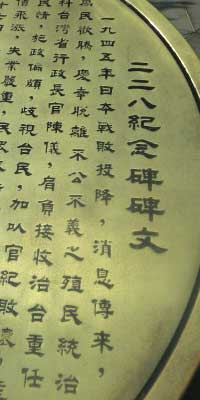 二二八紀念碑碑文
一九四五年日本戰敗投降，消息傳來，
萬民歡騰，慶幸脫離不公不義之殖民統治
料台灣省行政長官陳儀，肩負接收治台重任
民情，施政偏頗，歧視台民，加以官紀敗壞，
飛漲，失業嚴重，民眾